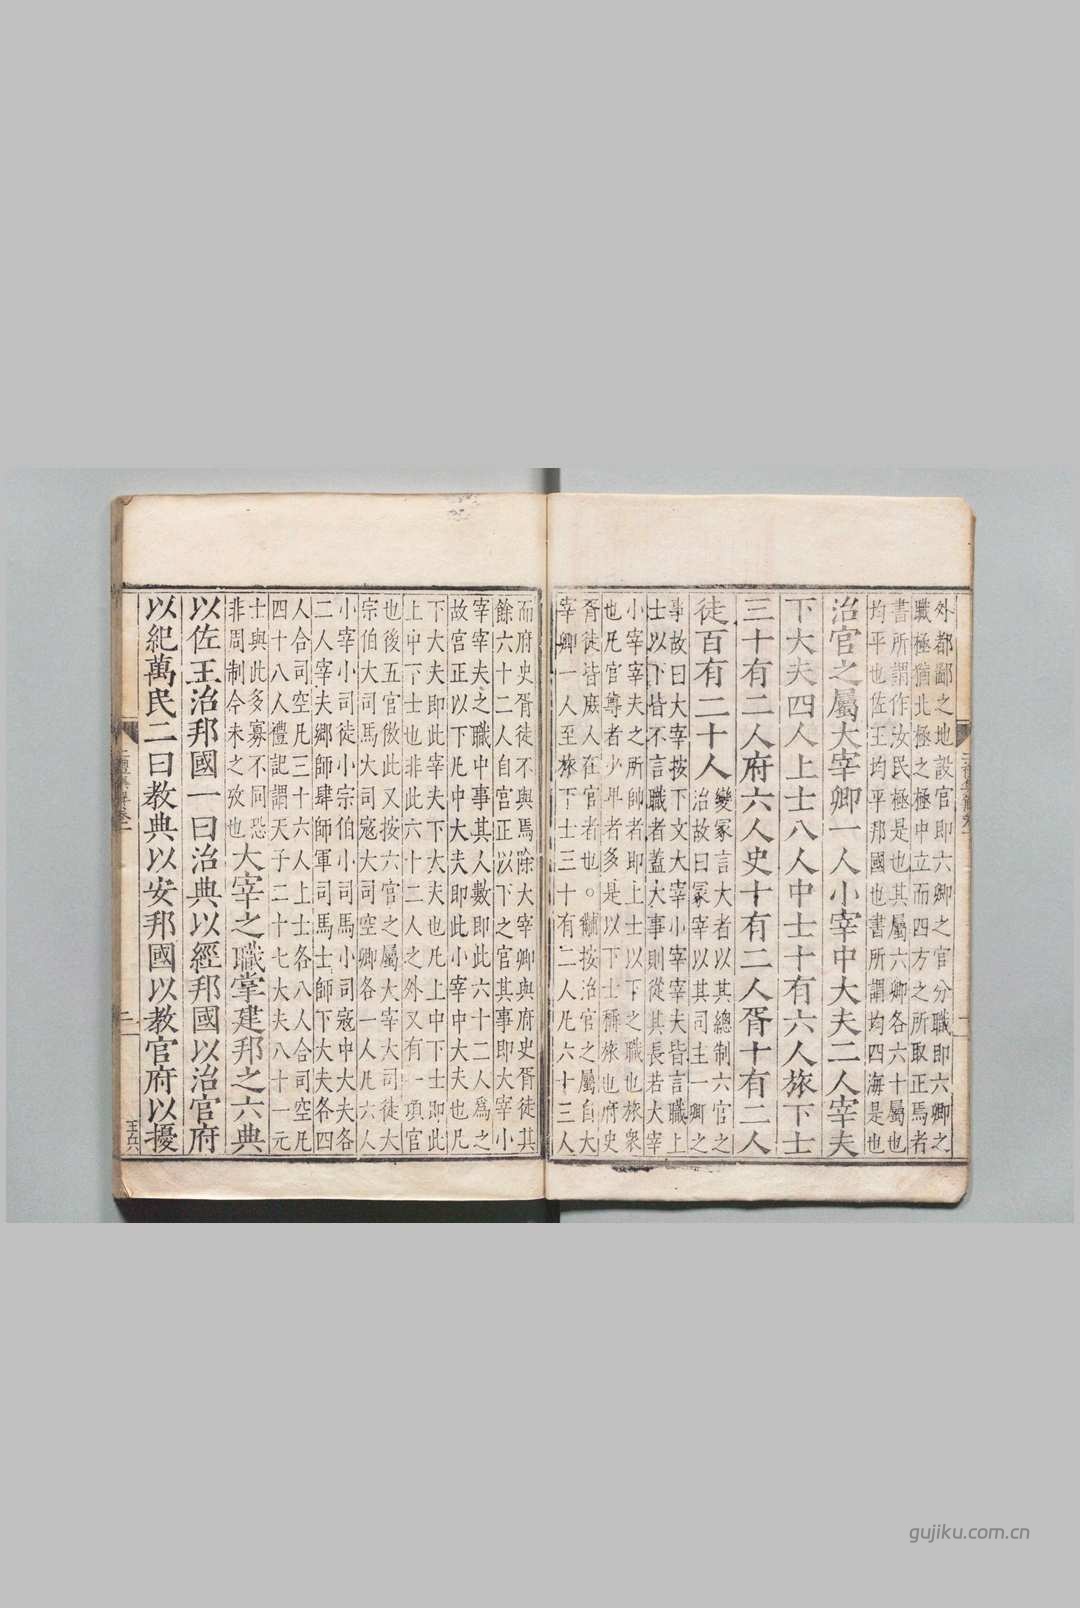 外都鄙之地設官即六卿之官分職即六卿之
職極猶北極之極中立而四方之所取正焉者
書所謂作汝民極是也其屬六卿各六十屬也
均平也佐王均平邦國也書所謂均四海是也
治官之屬大宰卿一人小宰中大夫二人宰夫
下大夫四人上士八人中士十有六人旅下士
三十有二人府六人史十有二人胥十有二人
徒百有二十人
變冢言大者以其總制六官之
治故曰冢宰以其司主一卿之
事故曰大宰按下文大宰小宰宰夫皆言職上
士以下皆不言職者蓋大事則從其長若大宰
小宰宰夫之所帥者即上士以下之職也旅衆
也凡官尊者少卑者多是以下士稱旅也府史
胥徒皆庶人在官者也。按治官之屬自大
宰卿一人至旅下士三十有二人凡六十三人
而府史胥徒不與焉除大宰卿與府史胥徒其
餘六十二人自宮正以下之官其事即大宰小
宰宰夫之職中事其人數即此六十二人爲之
故宮正以下凡中大夫即此小宰中大夫也凡
下大夫即此宰夫下大夫也凡上中下士即此
上中下士也非此六十二人之外又有一項官
也後五官倣此又按六官之屬大宰大司徒大
宗伯大司馬大司寇大司空卿各一人凡六人
小宰小司徒小宗伯小司馬小司寇中大夫各
二人宰夫鄉師肆師軍司馬士師下大夫各四
人合司空凡三十六人上士各八人合司空凡
四十八人禮記謂天子二十七大夫八十一元
士與此多寡不同恐
非周制今未之攷也
大宰之職掌建邦之六典
以佐王治邦國一曰治典以經邦國以治官府
以紀萬民二曰教典以安邦國以教官府以擾
二
王五六
gujiku.com.cn